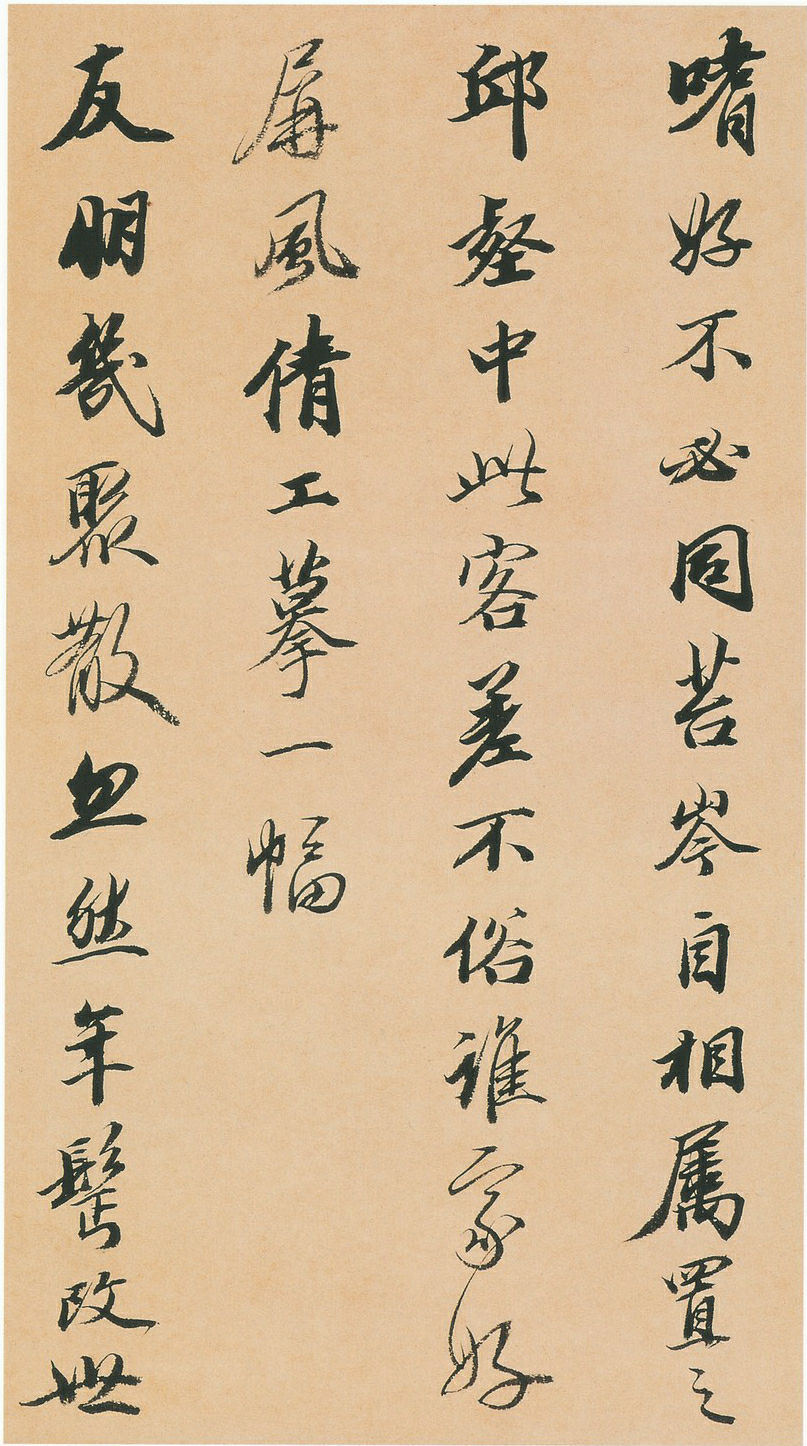 嗜好不必同苔岑自相属置之
邱壑中此客差不俗谁家好
屏風倩工摹一幅
友朋幾聚散忽然年鬓改世